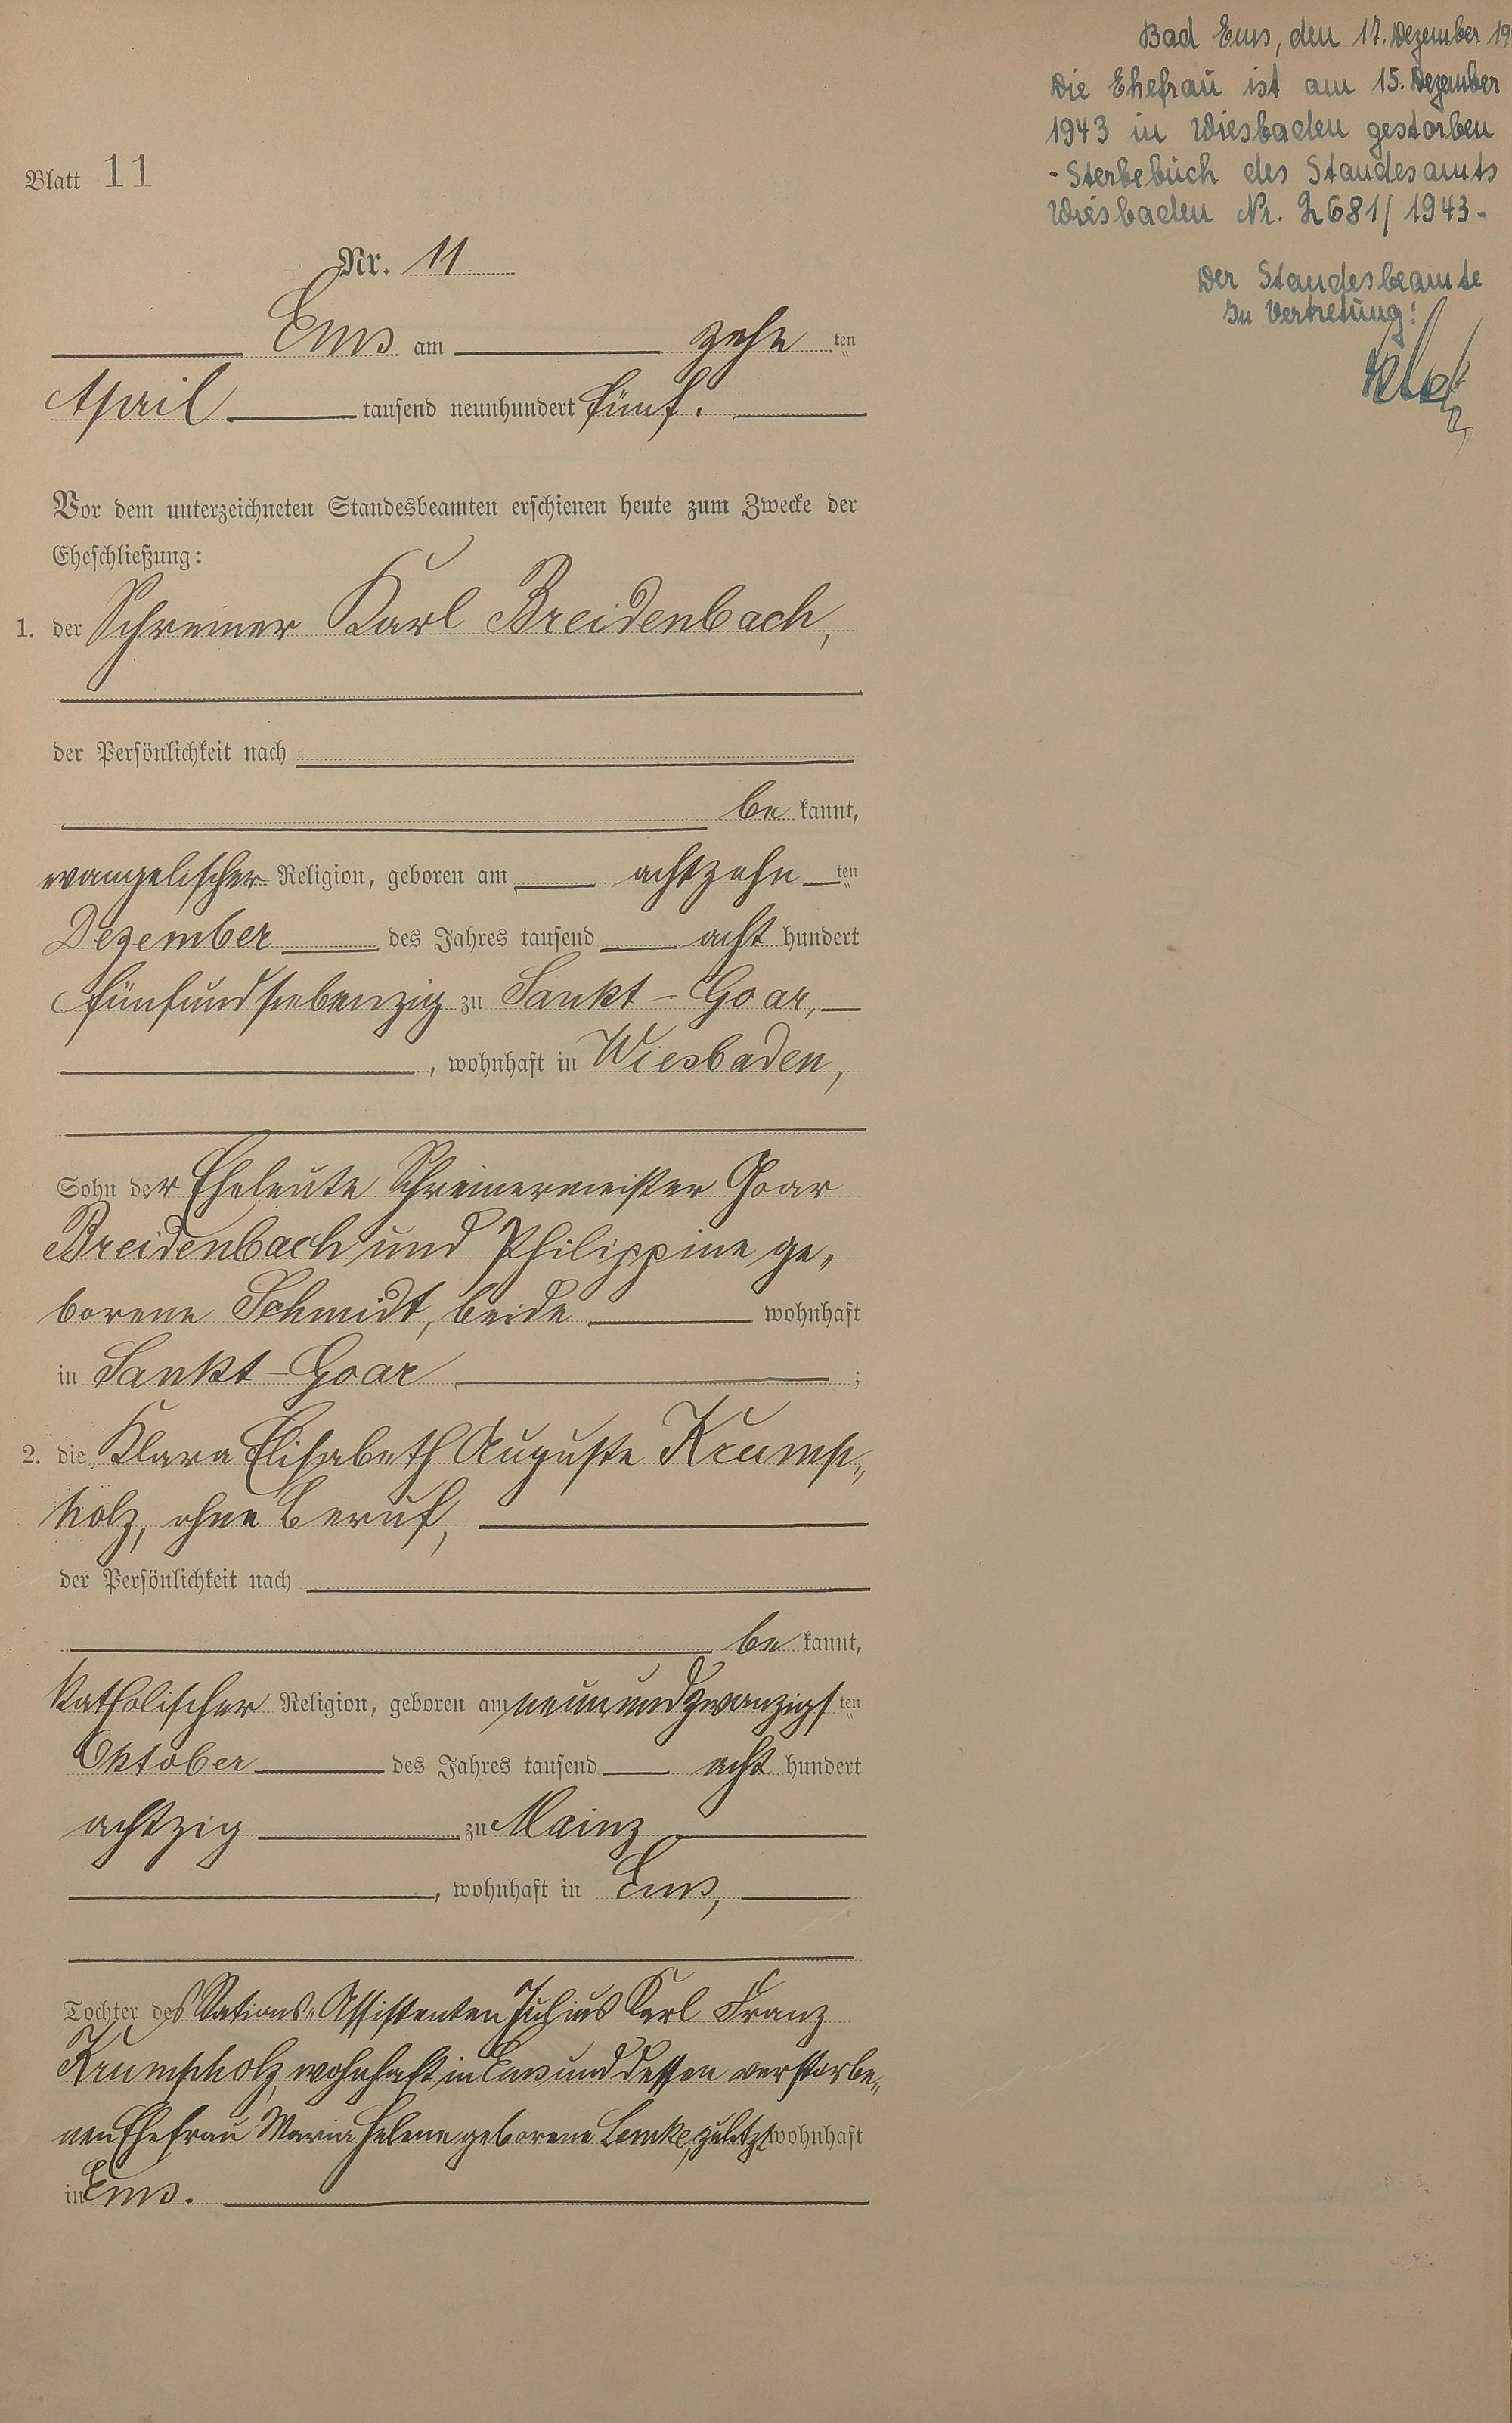 Bad Ems, den 17. Dezember 19
Die Ehefrau ist am 15. Dezember
1943 in Wiesbaden gestorben
- Sterbebuch des Standesamts
Wiesbaden Nr. 2681/1943 -
Der Standesbeamte
In Vertretung:
Blatt 11
Nr. 11
Ems am zehn ten
April tausend neunhundert fünf.
Vor dem unterzeichneten Standesbeamten erschienen heute zum Zwecke der
Eheschließung:
1. der Schreiner Karl Breidenbach,
der Persönlichkeit nach
be kannt,
evangelischer Religion, geboren am achtzehn ten
Dezember des Jahres tausend acht hundert
fünfundsiebenzig zu Sankt-Goar,
, wohnhaft in Wiesbaden,
Sohn der Eheleute Schreinermeister Goar
Breidenbach und Philippine ge„
borene Schmidt, beide wohnhaft
in Sankt-Goar ;
2. die Klara Elisabeth Auguste Krump„
holz, ohne Beruf,
der Persönlichkeit nach
be kannt,
katholischer Religion, geboren am neunundzwanzigs ten
Oktober des Jahres tausend acht hundert
achtzig zu Mainz
, wohnhaft in Ems,
Tochter des Stations-Assistenten Julius Karl Franz
Krumpholz, wohnhaft in Ems und dessen verstorbe„
nen Ehefrau Maria Helene geborene Lemke, zuletzt wohnhaft
in Ems.